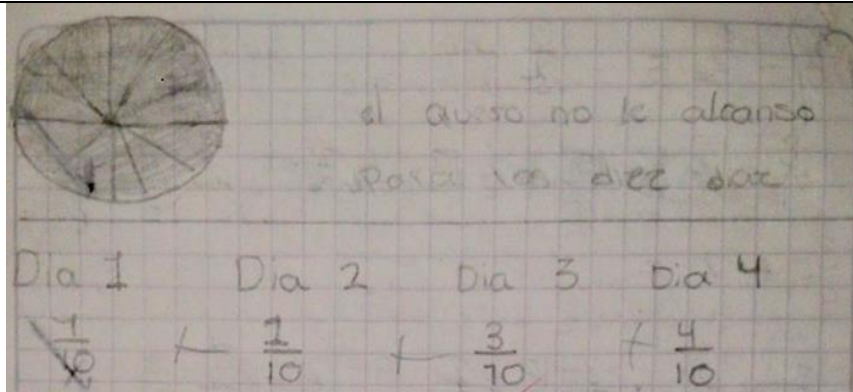 el queso no le alcanso
para los diez dias
Dia 1 Dia 2 Dia 3 Dia 4
1/10 + 2/10 + 3/10 + 4/10